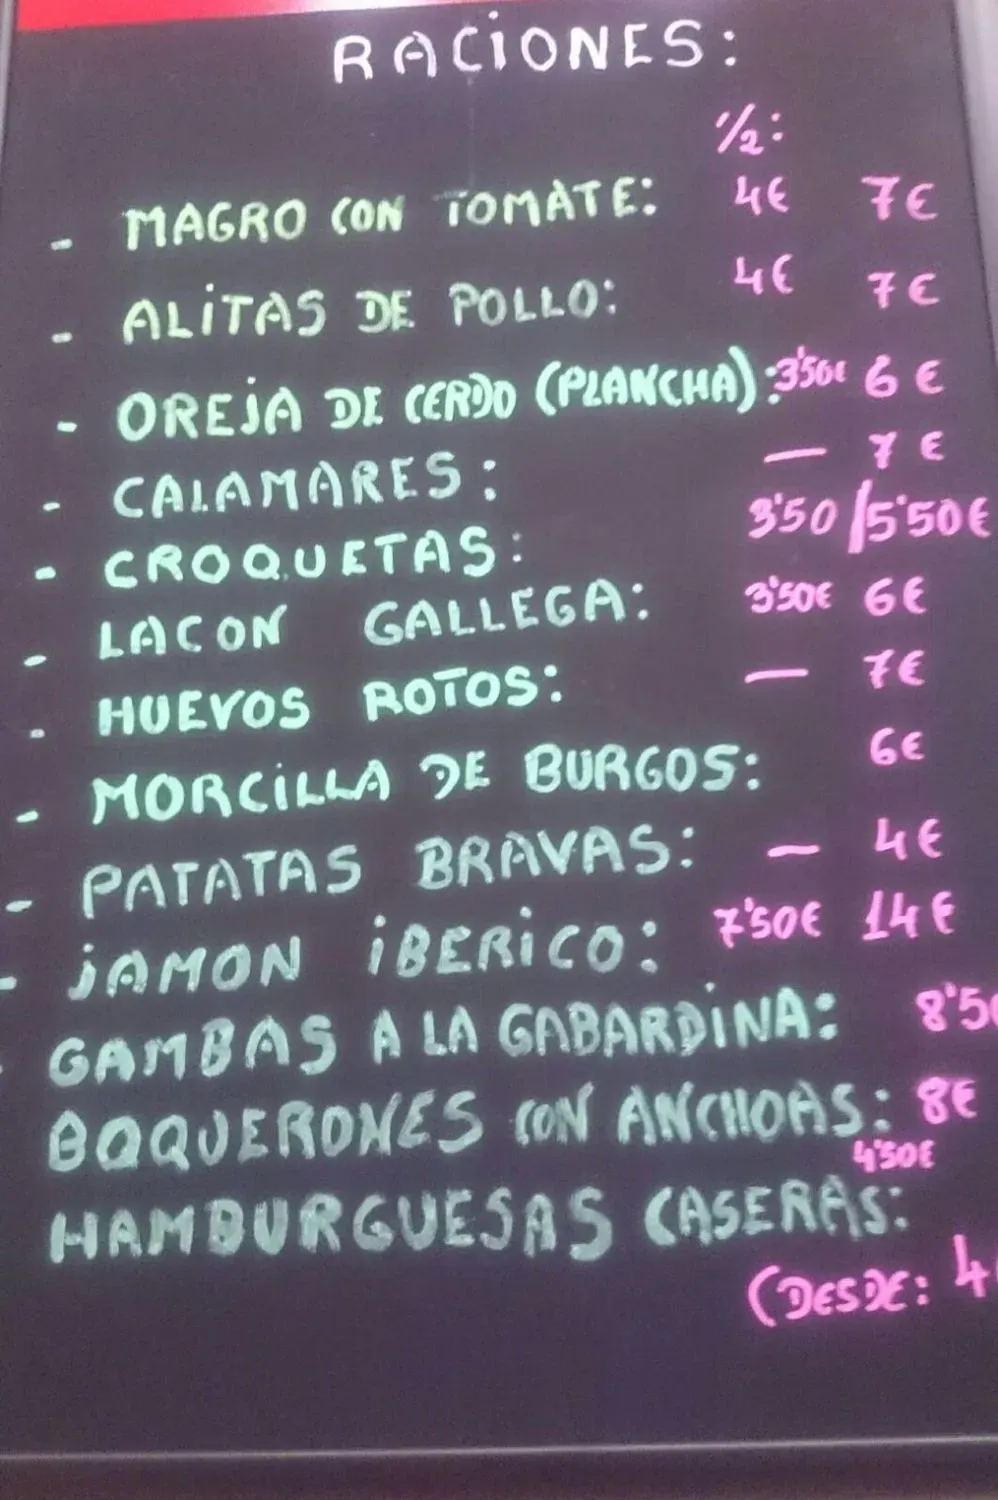 RACIONES:
1/2:
- MAGRO CON TOMATE: 4€ 7€
- ALITAS DE POLLO: 4€ 7€
- OREJA DE CERDO (PLANCHA): 3'50€ 6€
- CALAMARES: — 7€
- CROQUETAS: 3'50/5'50€
- LACON GALLEGA: 3'50€ 6€
- HUEVOS ROTOS: — 7€
- MORCILLA DE BURGOS: 6€
- PATATAS BRAVAS: — 4€
- JAMON IBERICO: 7'50€ 14€
GAMBAS A LA GABARDINA: 8'5
BOQUERONES CON ANCHOAS: 8€
4'50€
HAMBURGUESAS CASERAS:
(DESDE: 4